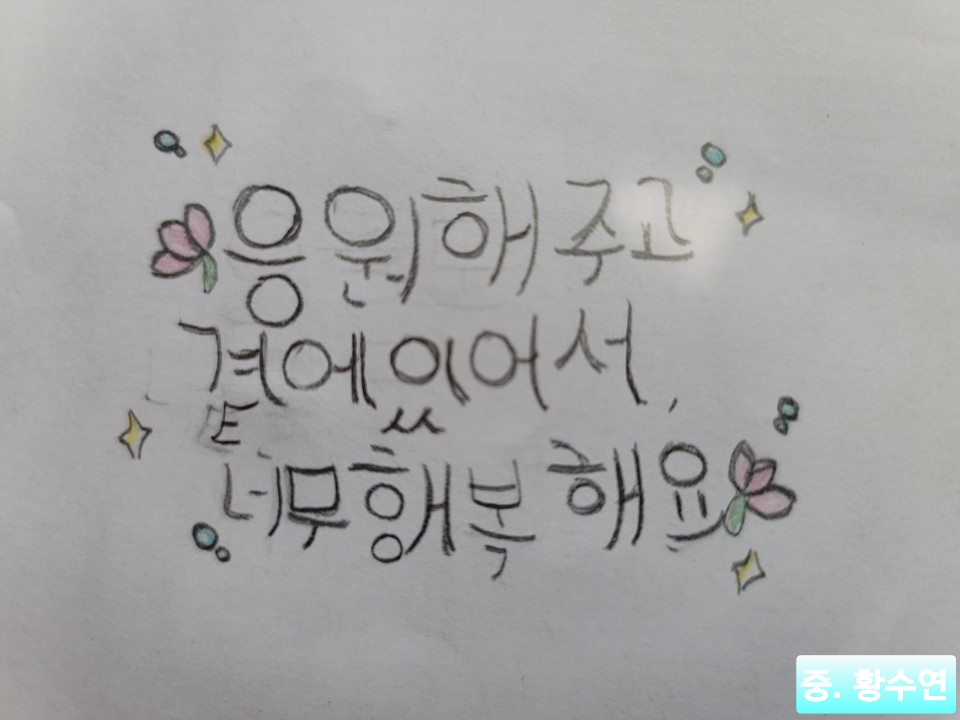 응원해주고
곁에있어서
너무행복해요
중. 황수연